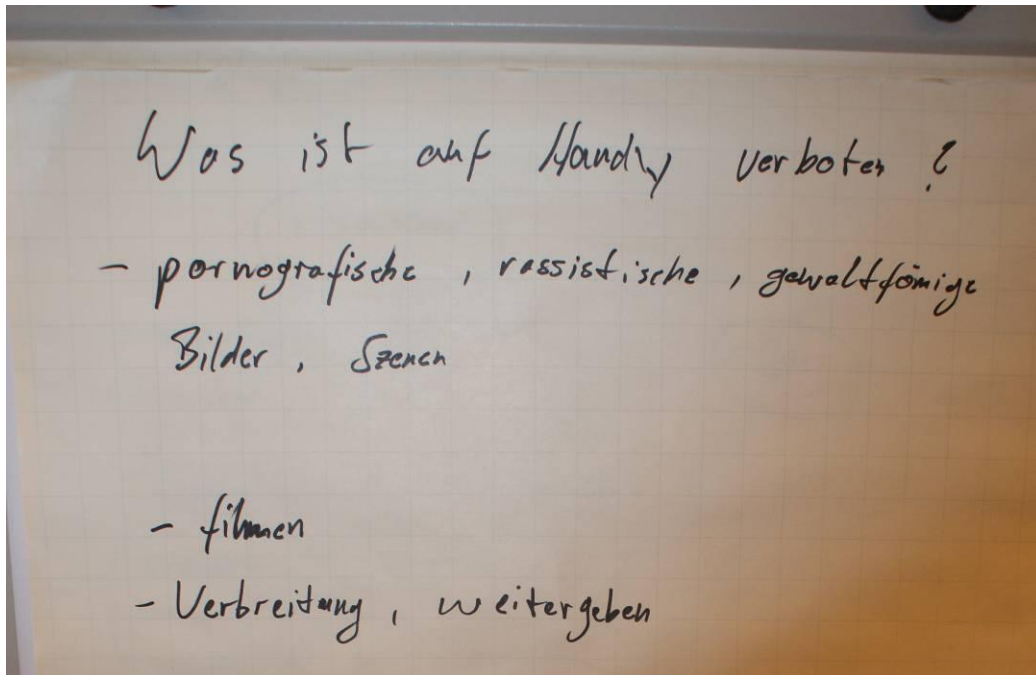 Was ist auf Handy verboten ?
- pornografische , rassistische , gewaltfömige
Bilder , Szenen
- filmen
- Verbreitung , weitergeben